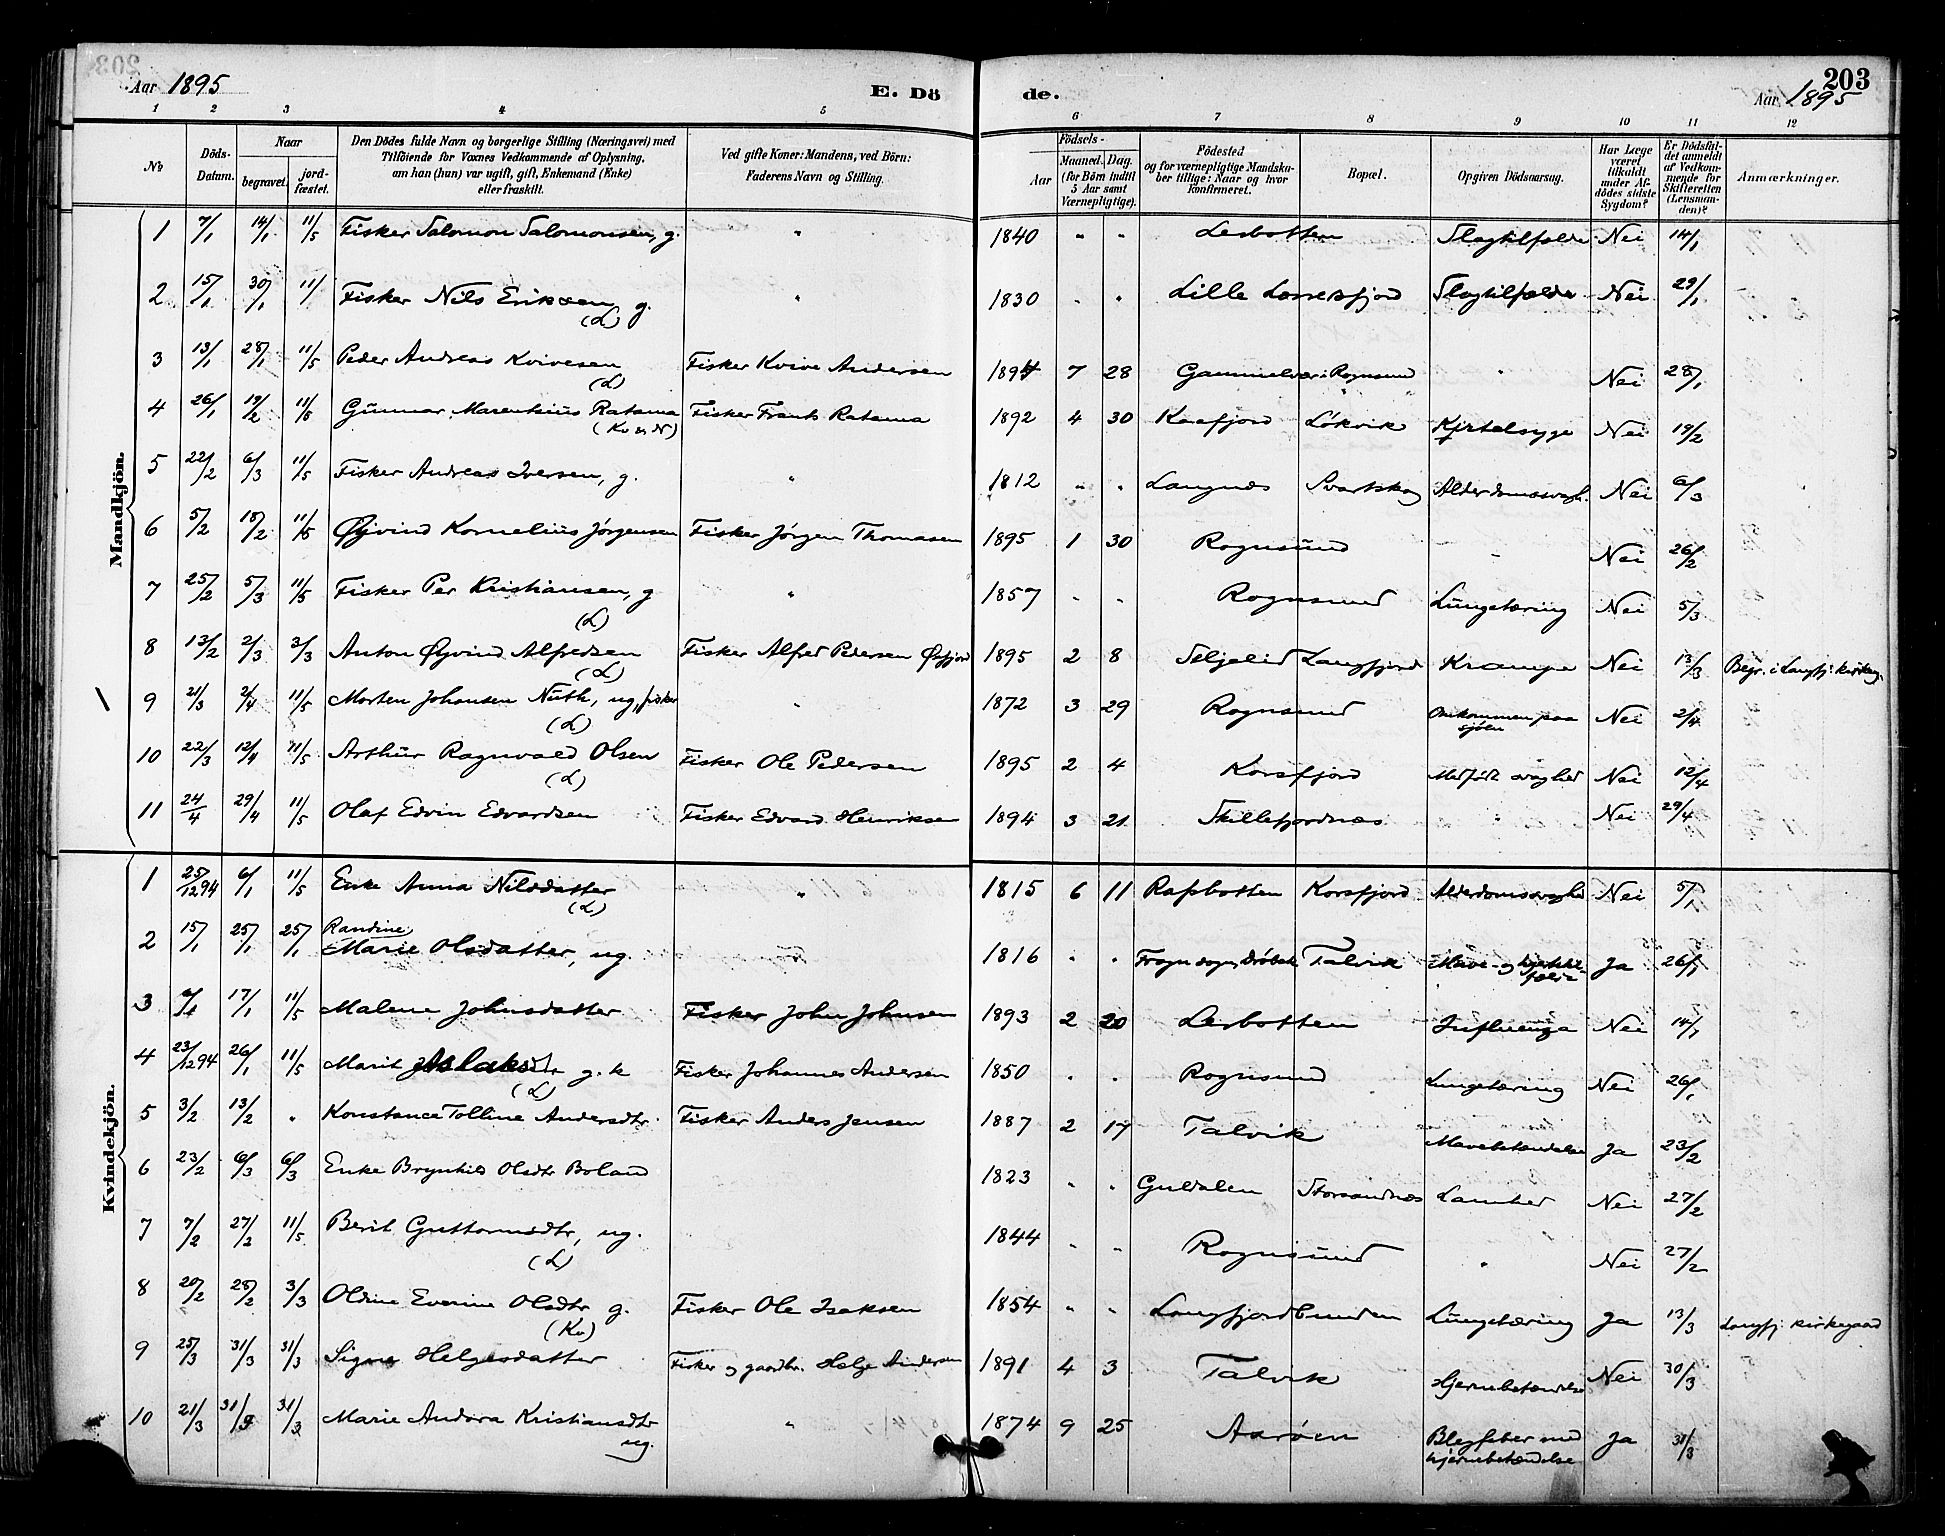 203
Aar 1895 E. Dö de. Aar 1895
1 2 3 4 5 6 7 8 9 10 11 12
No
Döds-Datum.
Naar
begravet.
jord-fæstet.
Den Dödes fulde Navn og borgerlige Stilling (Næringsvei) med
Tilföiende for Voxnes Vedkommende af Oplysning,
om han (hun) var ugift, gift, Enkemand (Enke)
eller fraskilt.
Ved gifte Koner: Mandens, ved Börn:
Faderens Navn og Stilling.
Födsels-
Aar
Maaned. Dag.
(for Börn indtil
5 Aar samt
Værnepligtige).
Födested
og for værnepligtige Mandska-
ber tillige: Naar og hvor
konfirmeret.
Bopæl.
Opgiven Dödsaarsag.
Har Læge
været
tilkaldt
under Af-
dödes sidste
Sygdom?
Er Dödsfal-
det anmeldt
af Vedkom-
mende for
Skifteretten
(Lensman-
den)?
Anmærkninger.
Mandkjön.
1 7/1 14/1 11/5 Fisker Salomon Salomonsen, g. " 1840 " " Lerbotten Slagtilfælde Nei 14/1
2 15/1 30/1 11/ Fisker Nils Eriksen, g. (L) " 1830 " " Lille Lerresfjord Slagtilfælde Nei 29/1
3 13/1 28/1 11/5 Peder Andreas Kvivesen (L) Fisker Kvive Andersen 1894 7 28 Gammelvær i Rognsund " Nei 28/1
4 26/1 19/2 11/5 Gunnar Marenkius Ratama (Kv & N) Fisker Frants Ratama 1892 4 30 Kaafjord Lökvik Kjirtelsyge Nei 19/2
5 22/2 6/3 11/5 Fisker Andreas Iversen, g. " 1812 " " Langnes Svartskog Alderdomssvagh. Nei 6/3
6 5/2 18/2 11/5 Øjvind Kornelius Jörgensen Fisker Jörgen Thomasen 1895 1 30 Rognsund - Nei 26/2
7 25/2 5/3 11/5 Fisker Per Kristiansen, g (L) " 1857 " " Rognsund Lungetæring Nei 5/3
8 13/2 2/3 3/3 Anton Øyvind Alfredsen (L) Fisker Alfred Pedersen Øxfjord 1895 2 8 Seljelid Langfjord Krampe Nei 13/3 Begr. i Langfj. kirkeg.
9 21/3 2/4 11/5 Morten Johansen Nuth, ug, fisker (L) " 1872 3 29 Rognsund Omkommen paa sjöen Nei 2/4
10 22/3 12/4 11/5 Arthur Ragnvald Olsen (L) Fisker Ole Pedersen 1895 2 4 Korsfjord Medfödt svaghed Nei 12/4
11 24/4 29/4 11/5 Olaf Edvin Edvardsen Fisker Edvard Henriksen 1894 3 21 Skillefjordnæs " Nei 29/4
Kvindekjön.
1 25/12 94 6/1 11/5 Enke Anna Nilsdatter (L) " 1815 6 11 Rafsbotten Korsfjord Alderdomssvaghed Nei 5/1
2 15/1 25/1 25/1 Randine Marie Olsdatter, ug. 1816 " " Frogn sogn, Dröbak Talvik Mave- og Ja 26/1
3 17/1 11/5 Malene Johnsdatter Fisker John Johnsen 1893 2 20 Lerbotten Influenza Nei 14/1
4 23/12 94 26/1 11/5 Marit Aslaksdtr g. k (L) Fisker Johannes Andersen 1850 " " Rognsund Lungetæring Nei 26/1
5 3/2 13/2 " Konstance Tolline Andersdtr. Fisker Anders Jensen 1887 2 17 Talvik Mavebetændelse Ja 23/2
6 23/2 6/3 6/3 Enke Brynhild Olsdtr Boland 1823 " " Guldalen Storsandnæs Lamhed Nei 27/2
7 7/2 27/2 11/5 Berit Guttormsdtr, ug. (L) 1844 " " Rognsund " Nei 27/2
8 20/2 28/2 3/3 Oldine Evenine Olsdtr g. (Kv) Fisker Ole Isaksen 1854 " " Langfjordbunden Lungetæring Ja 13/3 Langfj. kirkegaard
9 25/3 31/3 31/3 Signe Helgesdatter Fisker og gaardbr. Helge Andersen 1891 4 3 Talvik Hjernebetændelse Nei 30/3
10 21/3 31/3 31/3 Marie Andora Kristiansdtr ug. " 1874 9 25 Aaröen Blegfeber med hjernebetændelse Ja 31/3